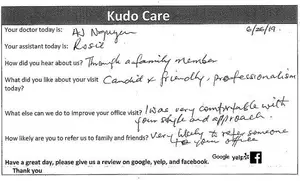 Kudo Care
Your doctor today is: AJ Nguyen 6/26/19.
Your assistant today is: Rosie
How did you hear about us? Through a family member
What did you like about your visit today? Candid & friendly, professionalism
What else can we do to improve your office visit? I was very comfortable with
your style and approach.
How likely are you to refer us to family and friends? Very likely to refer someone
to your office
Have a great day, please give us a review on google, yelp, and facebook.
Google yelp f
Thank you